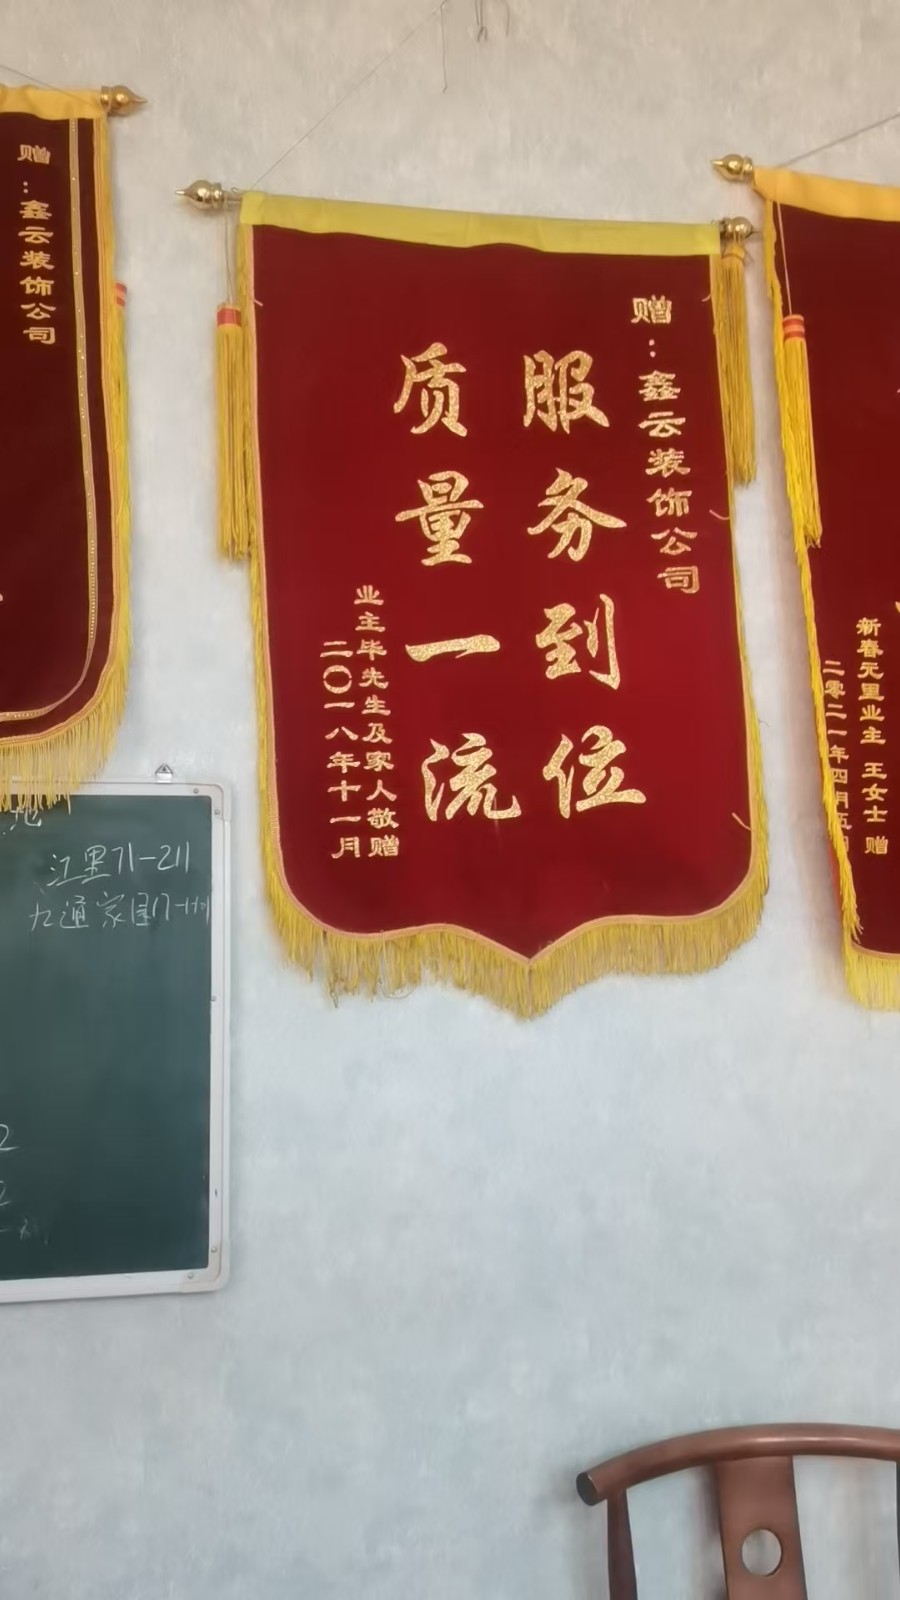 赠：鑫云装饰公司
赠：鑫云装饰公司
服务到位
质量一流
业主毕先生及家人敬赠
二〇一八年十一月
新春元里业主 王女士 赠
二零二一年四月五
江里71-211
九通家园17-1